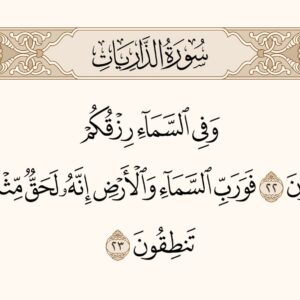 سُورَةُ الذَّارِيَاتِ
وَفِي السَّمَآءِ رِزْقُكُمْ
۝٢٢ فَوَرَبِّ السَّمَآءِ وَالْأَرْضِ إِنَّهُۥ لَحَقٌّ
تَنطِقُونَ ۝٢٣